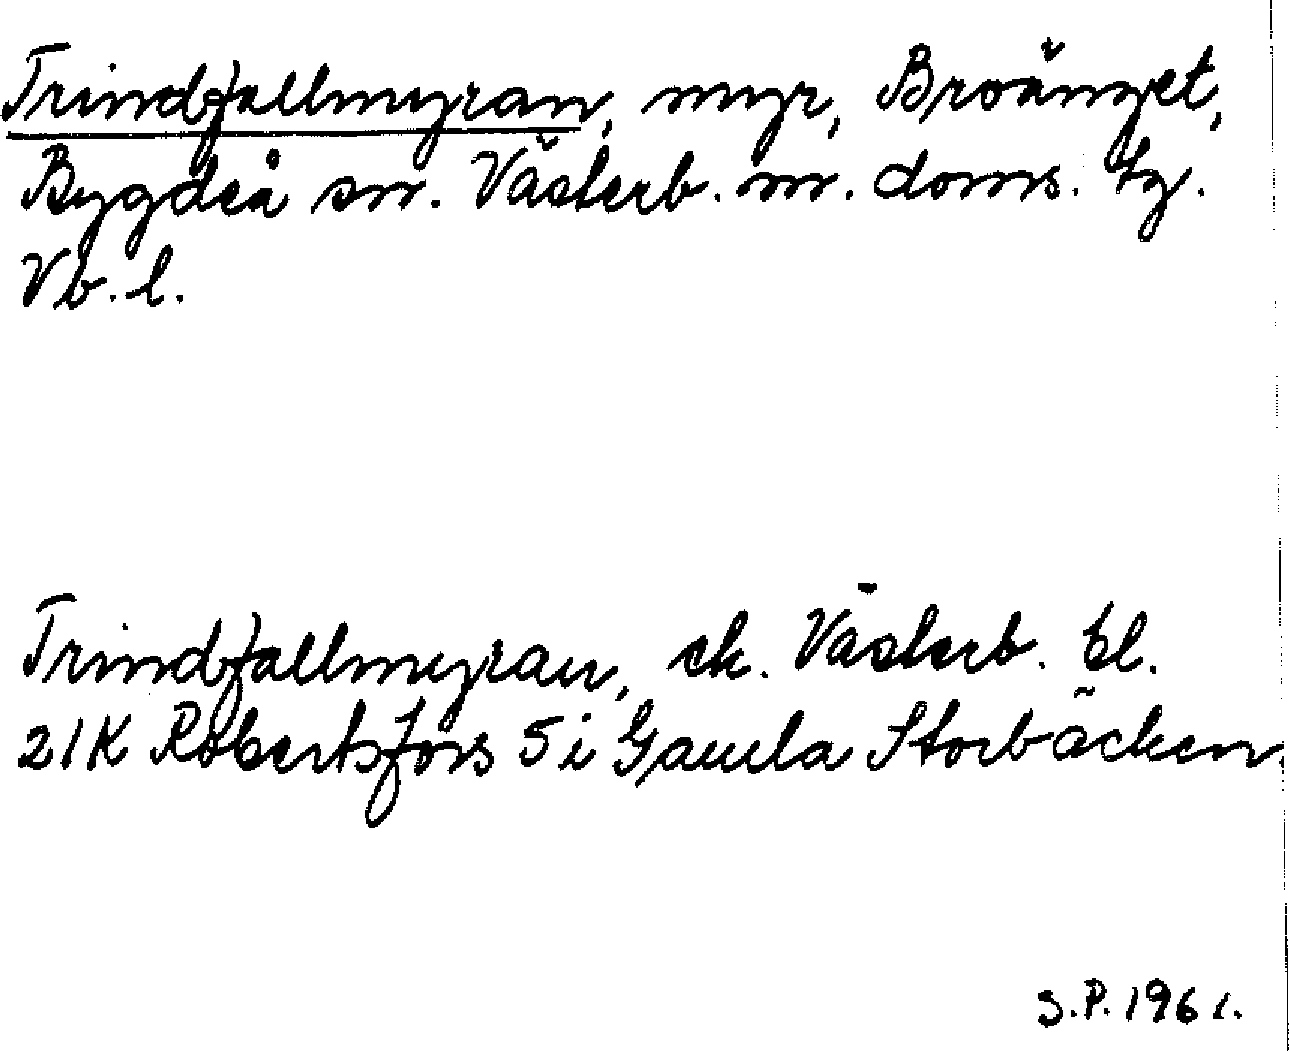 Trindfallmyran, myr, Broänget,
Bygdeå sn. Västerb. m. doms. tg.
Vb. l.
Trindfallmyran, ek. Västerb. bl.
21K Robertsfors 5 i Gamla Storbäcken.
S.P. 1961.